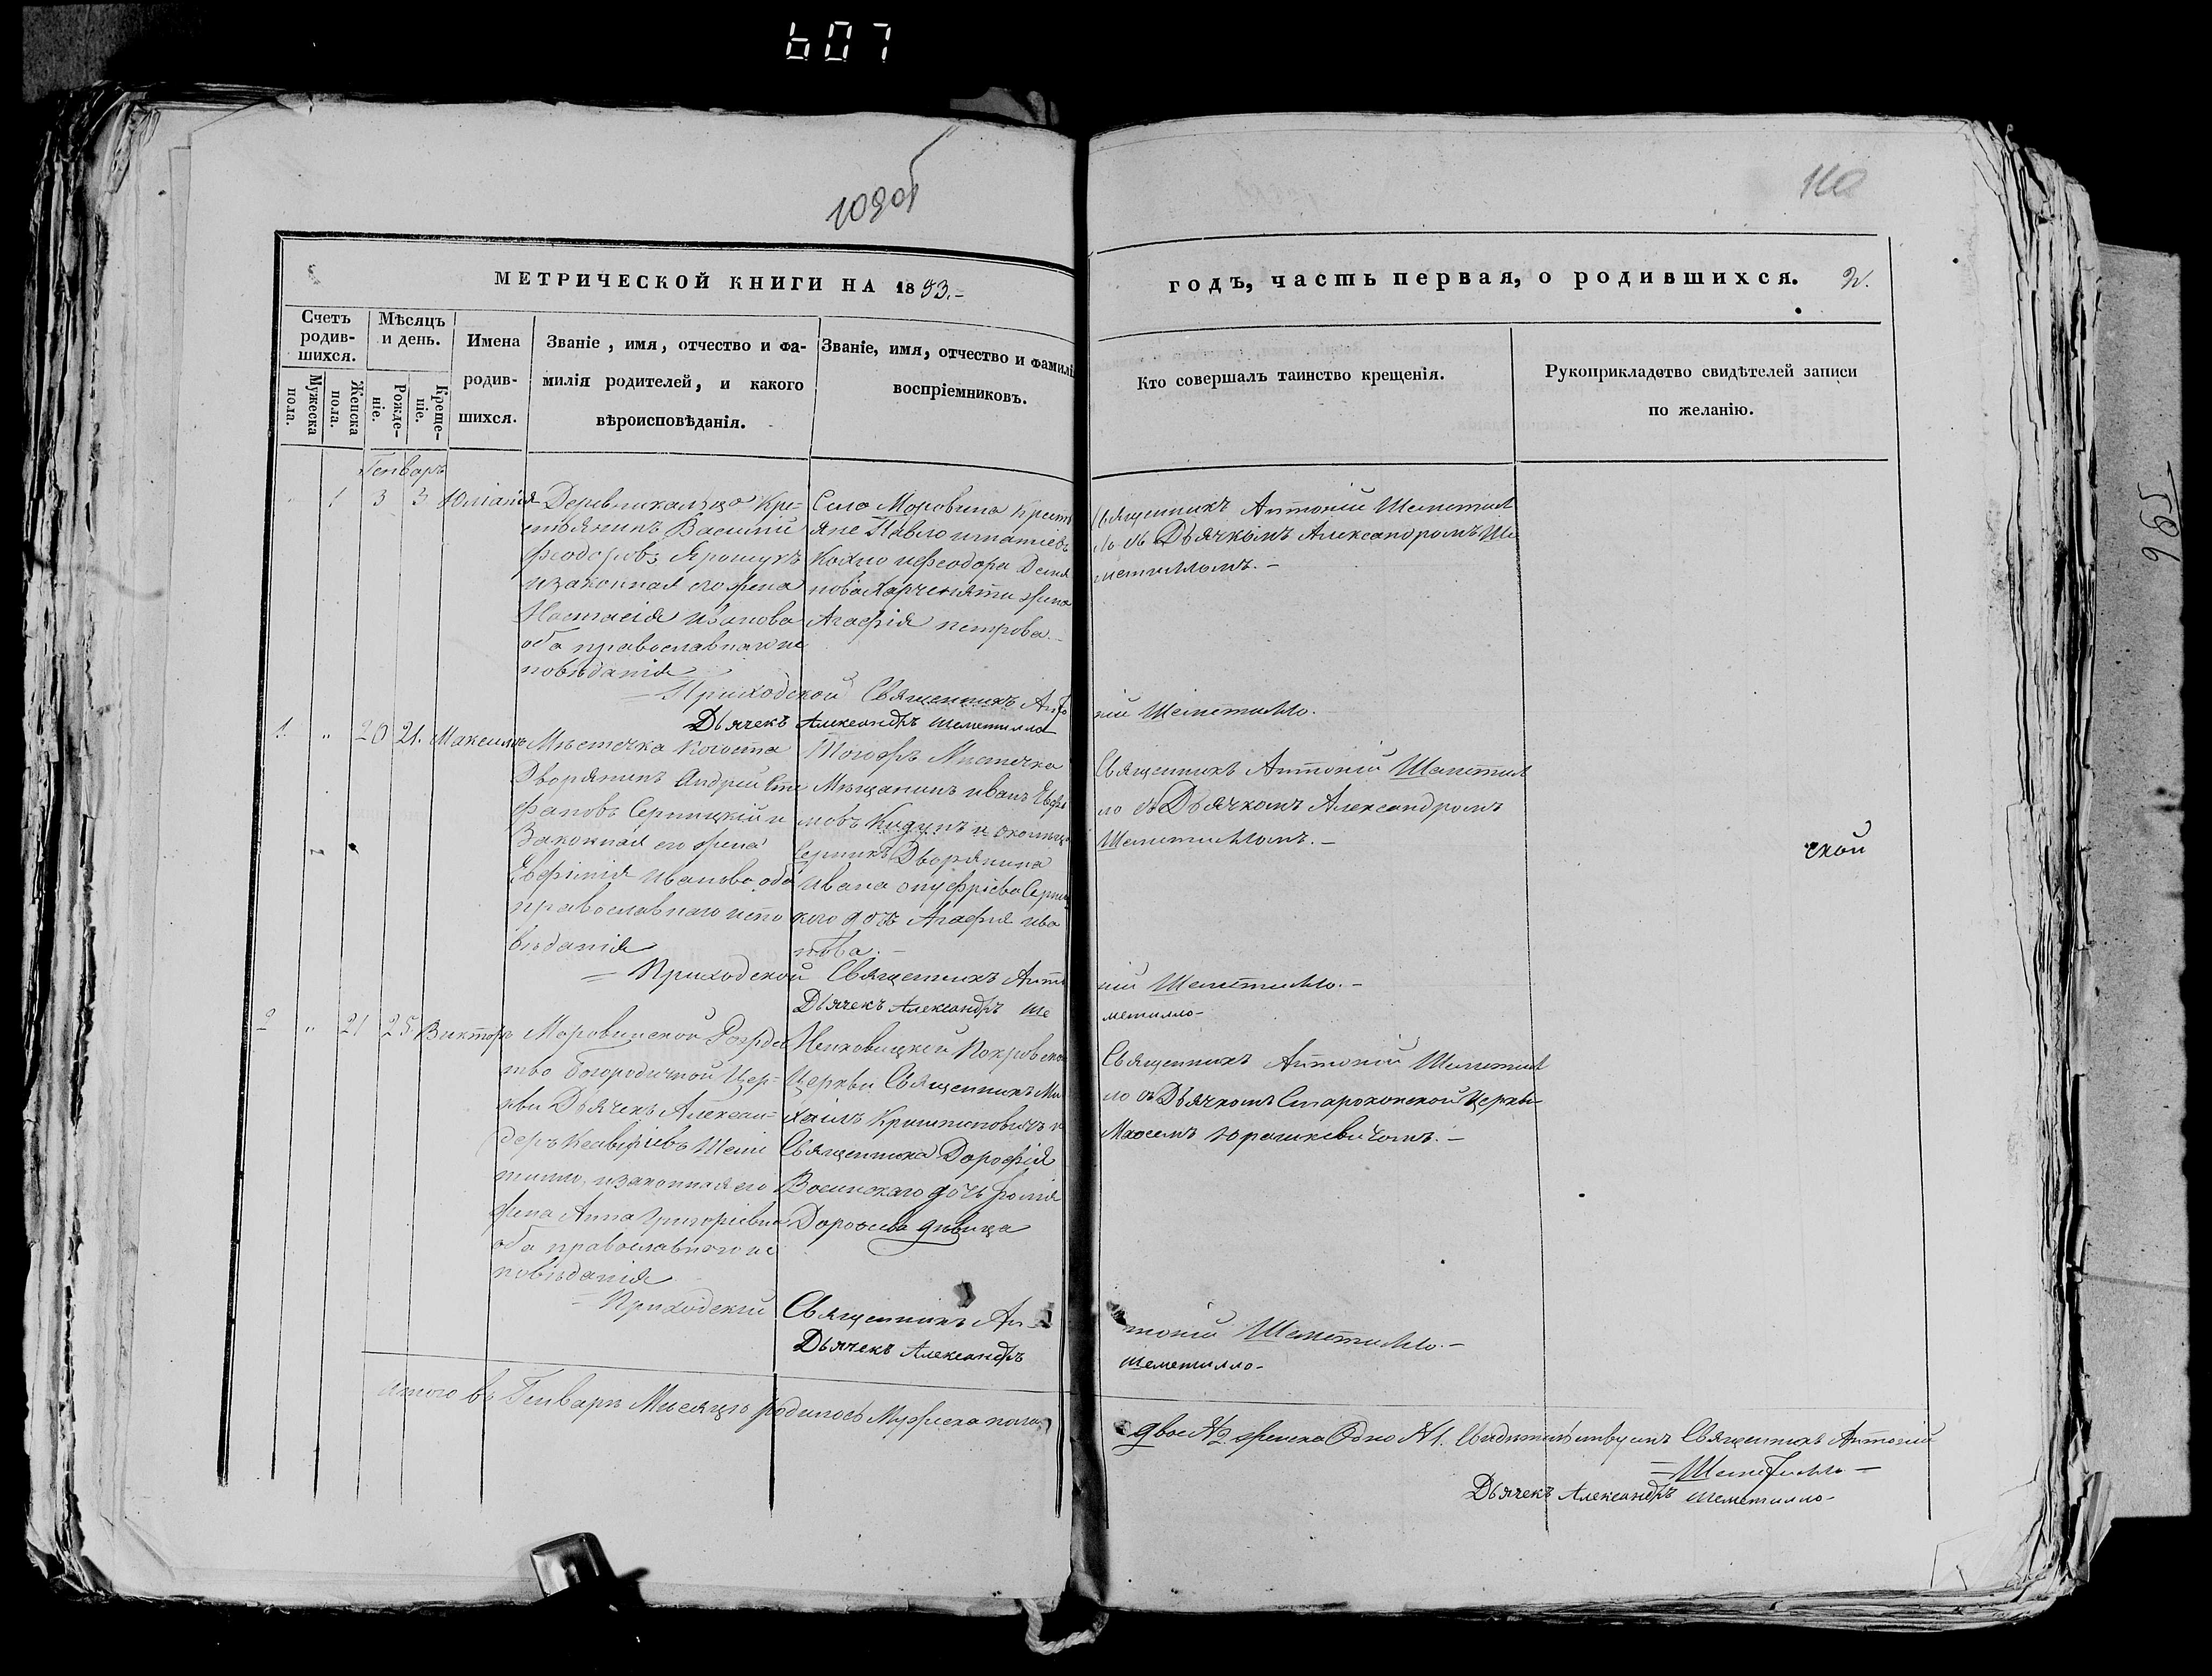 607
109об
110
965
МЕТРИЧЕСКОЙ КНИГИ НА 1853.-
годъ, часть первая, о родившихся. 2.
Счетъ родив-шихся.
Мужеска пола.
Женска пола.
Мѣсяцъ и день.
Рожде-ніе.
Креще-ніе.
Имена
родив-
шихся.
Званіе, имя, отчество и фа-
милія родителей, и какого
вѣроисповѣданія.
Званіе, имя, отчество и фамилі
воспріемниковъ.
Кто совершалъ таинство крещенія.
Рукоприкладство свидѣтелей записи
по желанію.
Генварь
1 3 3 Юліанія
Кре-
стьянинъ Василий
Феодоровъ Ярошукъ
и законная его жена
Настасія Иванова
оба православнаго ис
повѣданія
Село Моровина Крест
яне Павло Игнатіевъ
Кохно и Феодора
жена
Агафія петрова.-
Священникъ Антоній Шеметил
ло съ Дьячкомъ Александромъ Ше
метилломъ.-
Приходской Священникъ Анто
ній Шеметилло.
Дьячекъ Александръ Шеметилло
1. " 20 21. Максимъ
Мѣстечка Погоста
Дворянинъ Андрей Сте
фановъ Серницкій и
Законная его жена
Евфимія Иванова оба
православнаго испо
вѣданія
Тогожъ Мѣстечка
Мѣщанинъ иванъ
и околицы
Серникъ Дворянина
Ивана онуфріева Серниц
кого дочь Агафия ива
нова.-
Священникъ Антоній Шеметил
ло съ Дьячкомъ Александромъ
Шеметилломъ.-
ской
= Приходской Священникъ Анто
ній Шеметилло.-
Дьячекъ Александръ Ше
метилло-
2 " 21 25 Викторъ
Моровинской Рождес
тво Богородичной Цер-
кви Дьячекъ Алексан-
деръ Шеме
тилло, и законная его
жена Анна Григоріевна
оба православного ис
повѣданія
Покровской
Церкви Священникъ Ми
хаилъ
Священника Дорофія
дочь
дѣвица
Священникъ Антоній Шеметил
ло съ Дьячкомъ Староконской Церкви
Юрашкевичомъ.-
= Приходскій Священникъ Ан-
тоній Шеметилло.-
Дьячекъ Александръ
Шеметилло-
итого въ Генварѣ Мѣсяцѣ родилось Мужеска пола
двое № 2. женска Одно № 1. Священникъ Антоній
= Шеметилло -
Дьячекъ Александръ Шеметилло-